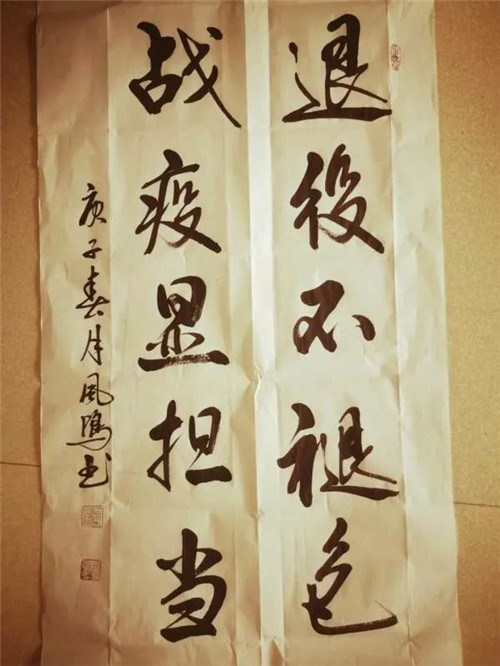 退役不褪色
战疫显担当
庚子春月风鸣书